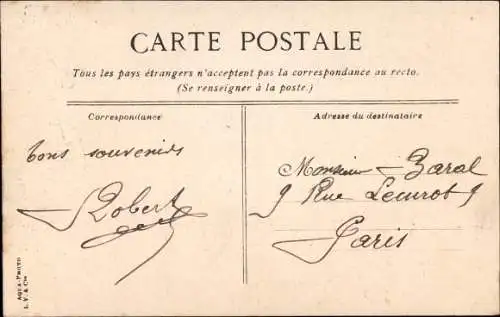 CARTE POSTALE
Tous les pays étrangers n'acceptent pas la correspondance au recto.
(Se renseigner à la poste.)
Correspondance
bons souvenirs
Robert
Adresse du destinataire
Monsieur Baral
9 Rue Lecurot 9
Paris
AQUA-PHOTO
L. V. & Cie